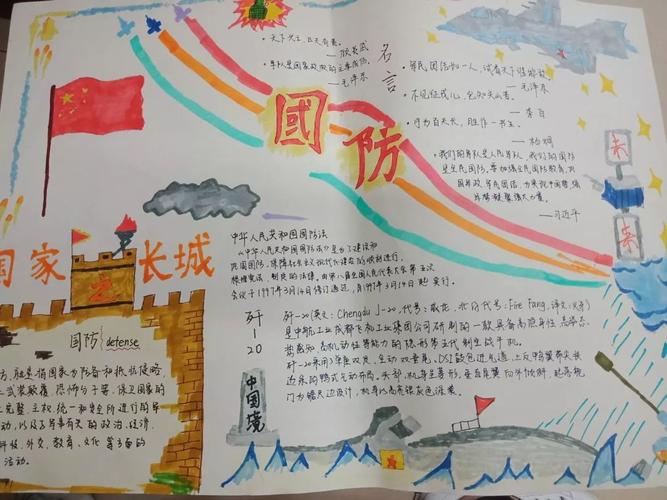 名言
天下兴亡，匹夫有责。
——顾炎武
军队是国家政权的主要成份。
——毛泽东
军民团结如一人，试看天下谁能敌。
——毛泽东
——李白
宁为百夫长，胜作一书生。
——杨炯
我们的军队是人民军队，我们的国防
是全民国防。要加强全民国防教育，巩
固军政军民团结，为实现中国梦强
军梦凝聚强大力量。
——习近平
國防
未来
未来
国家长城
国防 defense
国防，就是指国家为防备和抵抗侵略，
制止武装颠覆，
保卫国家的
主权、统一
和安全所进行的军
事活动，以及与军事有关的政治、经济、
科技、外交、教育、文化等方面的
活动。
中华人民共和国国防法
《中华人民共和国国防法》是为了建设和
巩固国防，保障社会主义现代化建设的顺利进行，
根据宪法，制定的法律，由第八届全国人民代表大会第五次
会议于1997年3月14日修订通过，自1997年3月14日起实行。
歼-20
歼-20(英文：Chengdu J-20，代号：威龙，北约代号：Fire Fang，译文：火牙)
是中航工业成都飞机工业集团公司研制的一款具备高隐身性、高态
势感知、高机动性等能力的隐形第五代制空战斗机。
歼-20采用
双发、全动双垂尾、DSI鼓包进气道、上反鸭翼带尖拱
边条的鸭式气动布局。
中国境